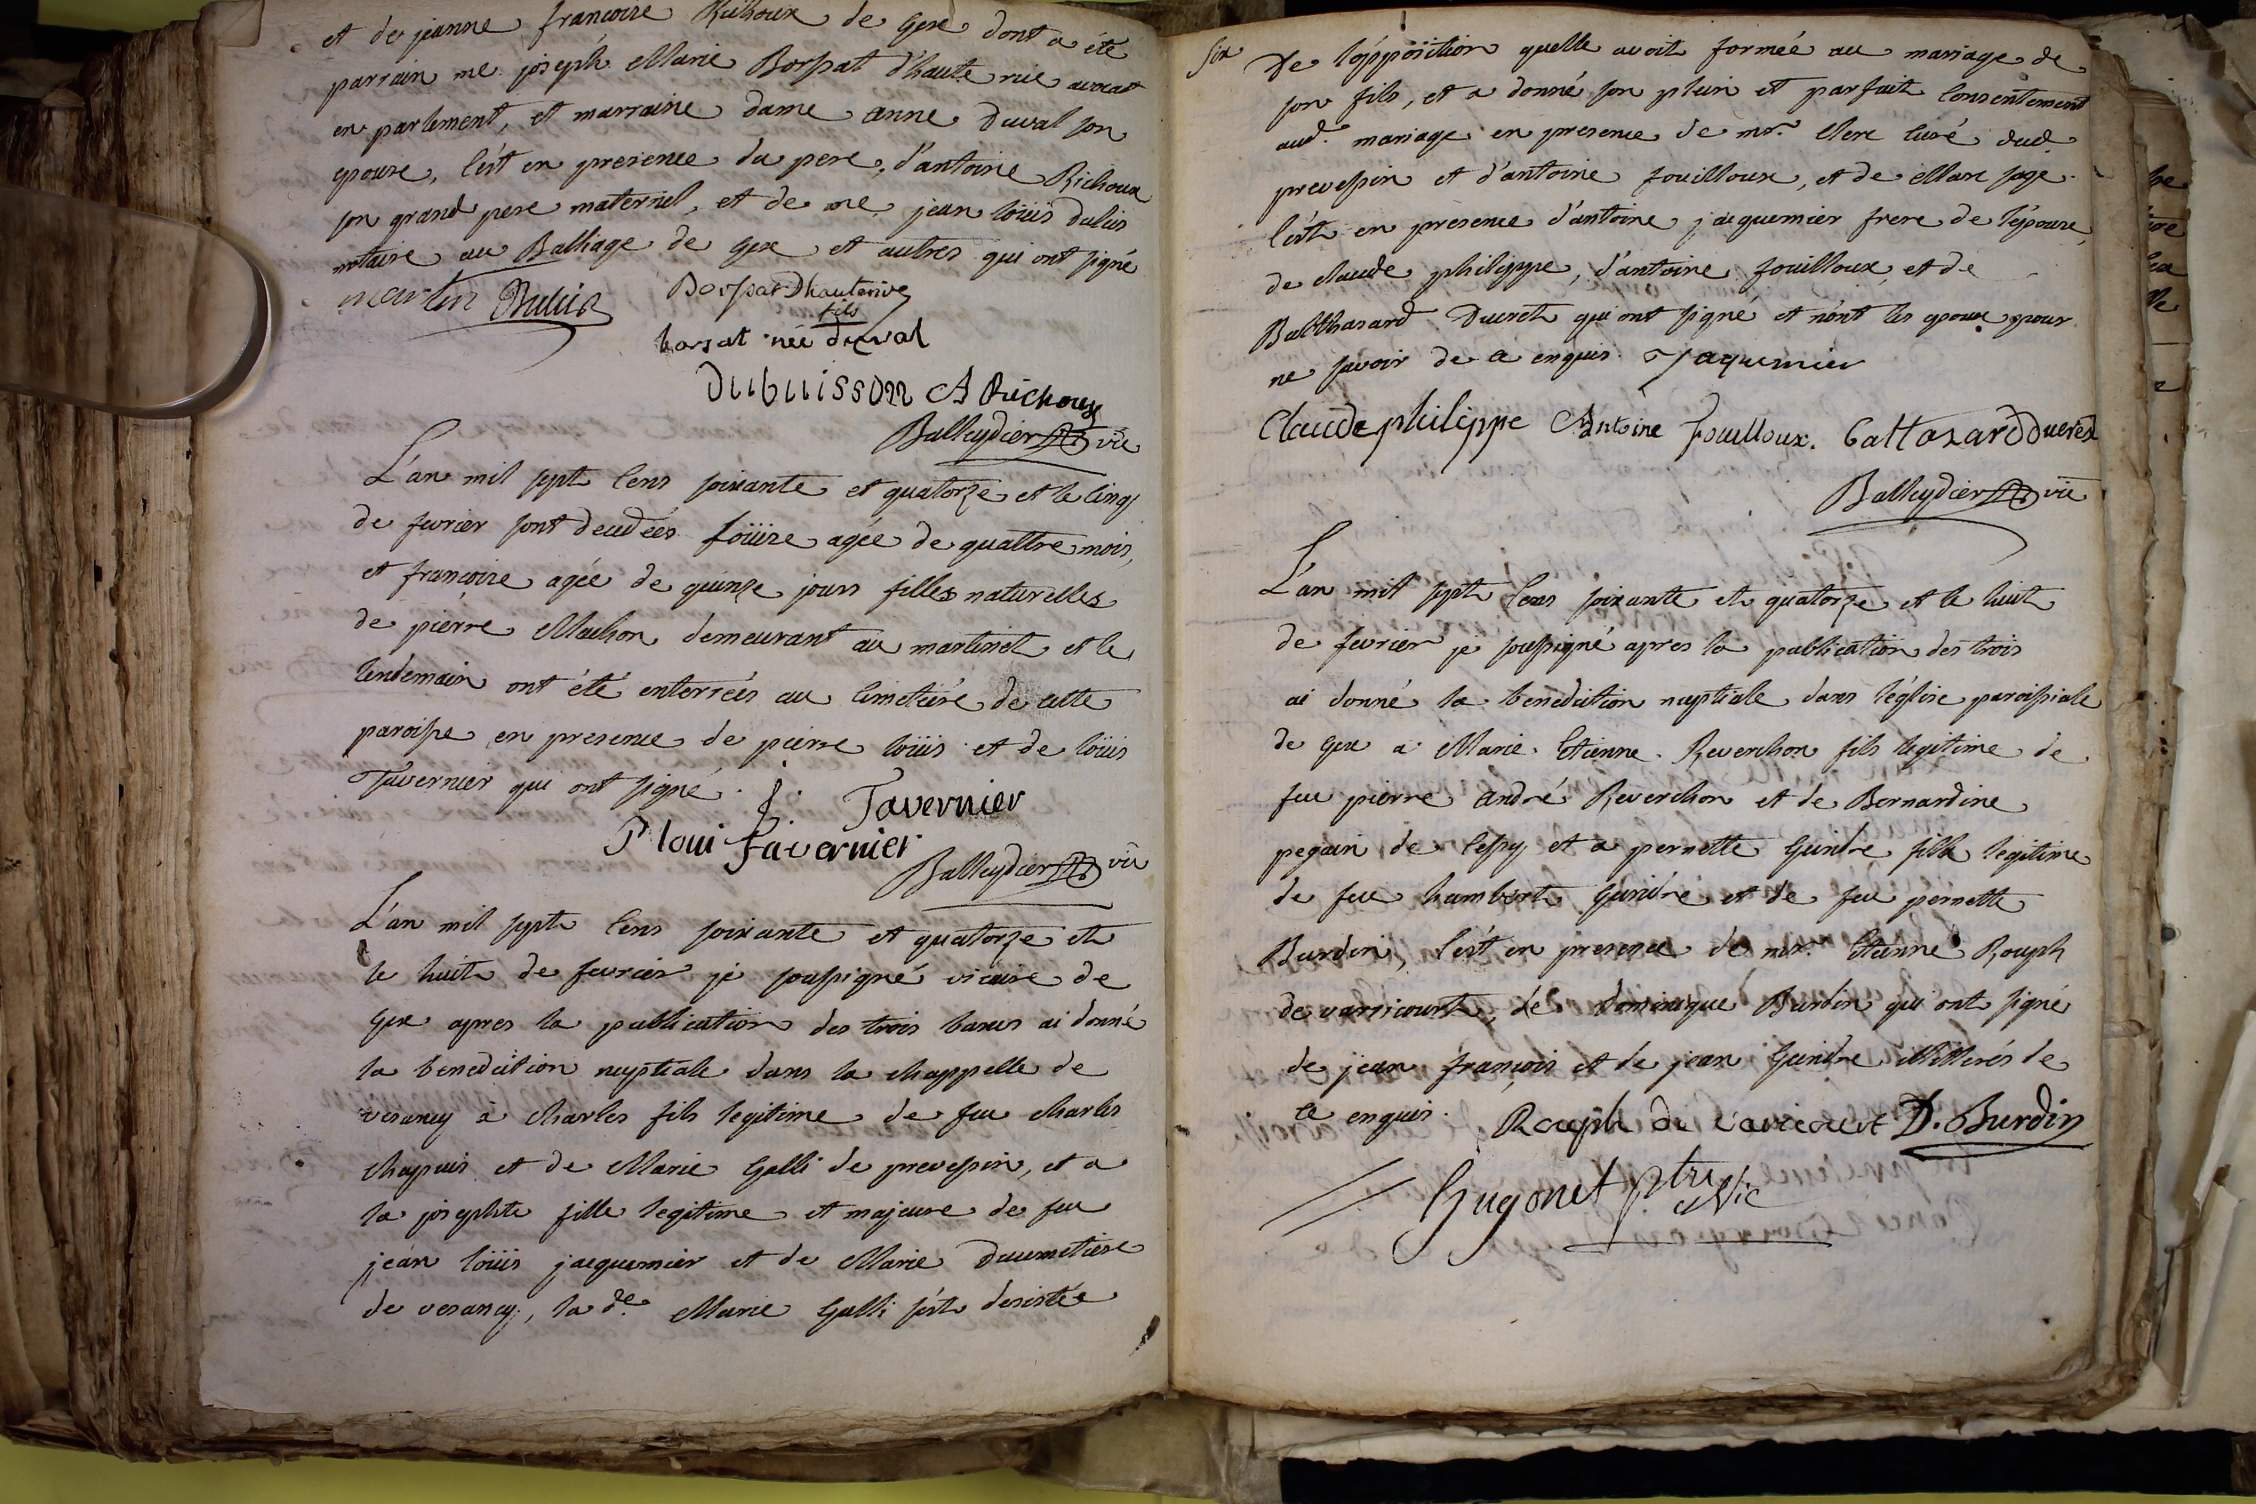 et de jeanne francoise Richoux de Gex dont a été
parrain me joseph Marie Borssat d'haute rive avocat
en parlement, et marraine dame anne Duval son
epouse, C'est en presence du pere, d'antoine Richoux
son grand pere maternel, et de me jean loüis dulcis
notaire au Balliage de Gex et autres qui ont signé
martin Dulcis Borssat Dhauterive
fils
borsat née duval
Dubuisson A Richoux
Balleydier vic
L'an mil sept Cens soixante et quatorze et le Cinq
de fevrier sont decedées loüise agée de quattre mois,
et françoise agée de quinze jours filles naturelles
de pierre Machon demeurant au martinet et le
lendemain ont été enterrées au Cimetiére de cette
paroisse en presence de pierre loüis et de loüis
Tavernier qui ont signé. L. Tavernier
P loui tavernier
Balleydier vic
L'an mil sept Cens soixante et quatorze et
le huit de fevrier je soussigné vicaire de
Gex apres la publication des trois bancs ai donné
la benediction nuptiale dans la chappelle de
vesancy à Charles fils legitime de feu Charles
Chapuis et de Marie Galli de prevessin, et a
la josephte fille legitime et majeure de feu
jean loüis jacquemier et de Marie Ducimetiere
de vesancy, la de Marie Galli s'est desistée
six De l'opposition quelle avoit formée au mariage de
son fils, et a donné son plein et parfait Consentement
aud. mariage en presence de mr. Clerc Curé dud.
prevessin et d'antoine fouilloux, et de Marc sage.
C'est en presence d'antoine jacquemier frere de l'épouse,
de claude philippe, d'antoine fouilloux, et de
Balthasard Ducret qui ont signé et nont les epoux pour
ne savoir de ce enquis. Jaquemier
Claude philippe Antoine fouilloux. baltazard ducret
Balleydier vic
L'an mil sept Cens soixante et quatorze et le huit
de fevrier je soussigné apres la publication des trois
ai donné la benediction nuptiale dans l'église paroissiale
de Gex a Marie Etienne Reverchon fils legitime de
feu pierre andré Reverchon et de Bernardine
pegain de Cessy et a pernette Gindre fille legitime
de feu humbert Gindre et de feu pernette
Burdin, C'est en presence de mr. Etienne Rouph
de varricourt, de dominique Burdin qui ont signé
de jean françois et de jean Gindre illitterés de
ce enquis. Rouph de Varicourt D. Burdin
Hugonet ptre
Vic